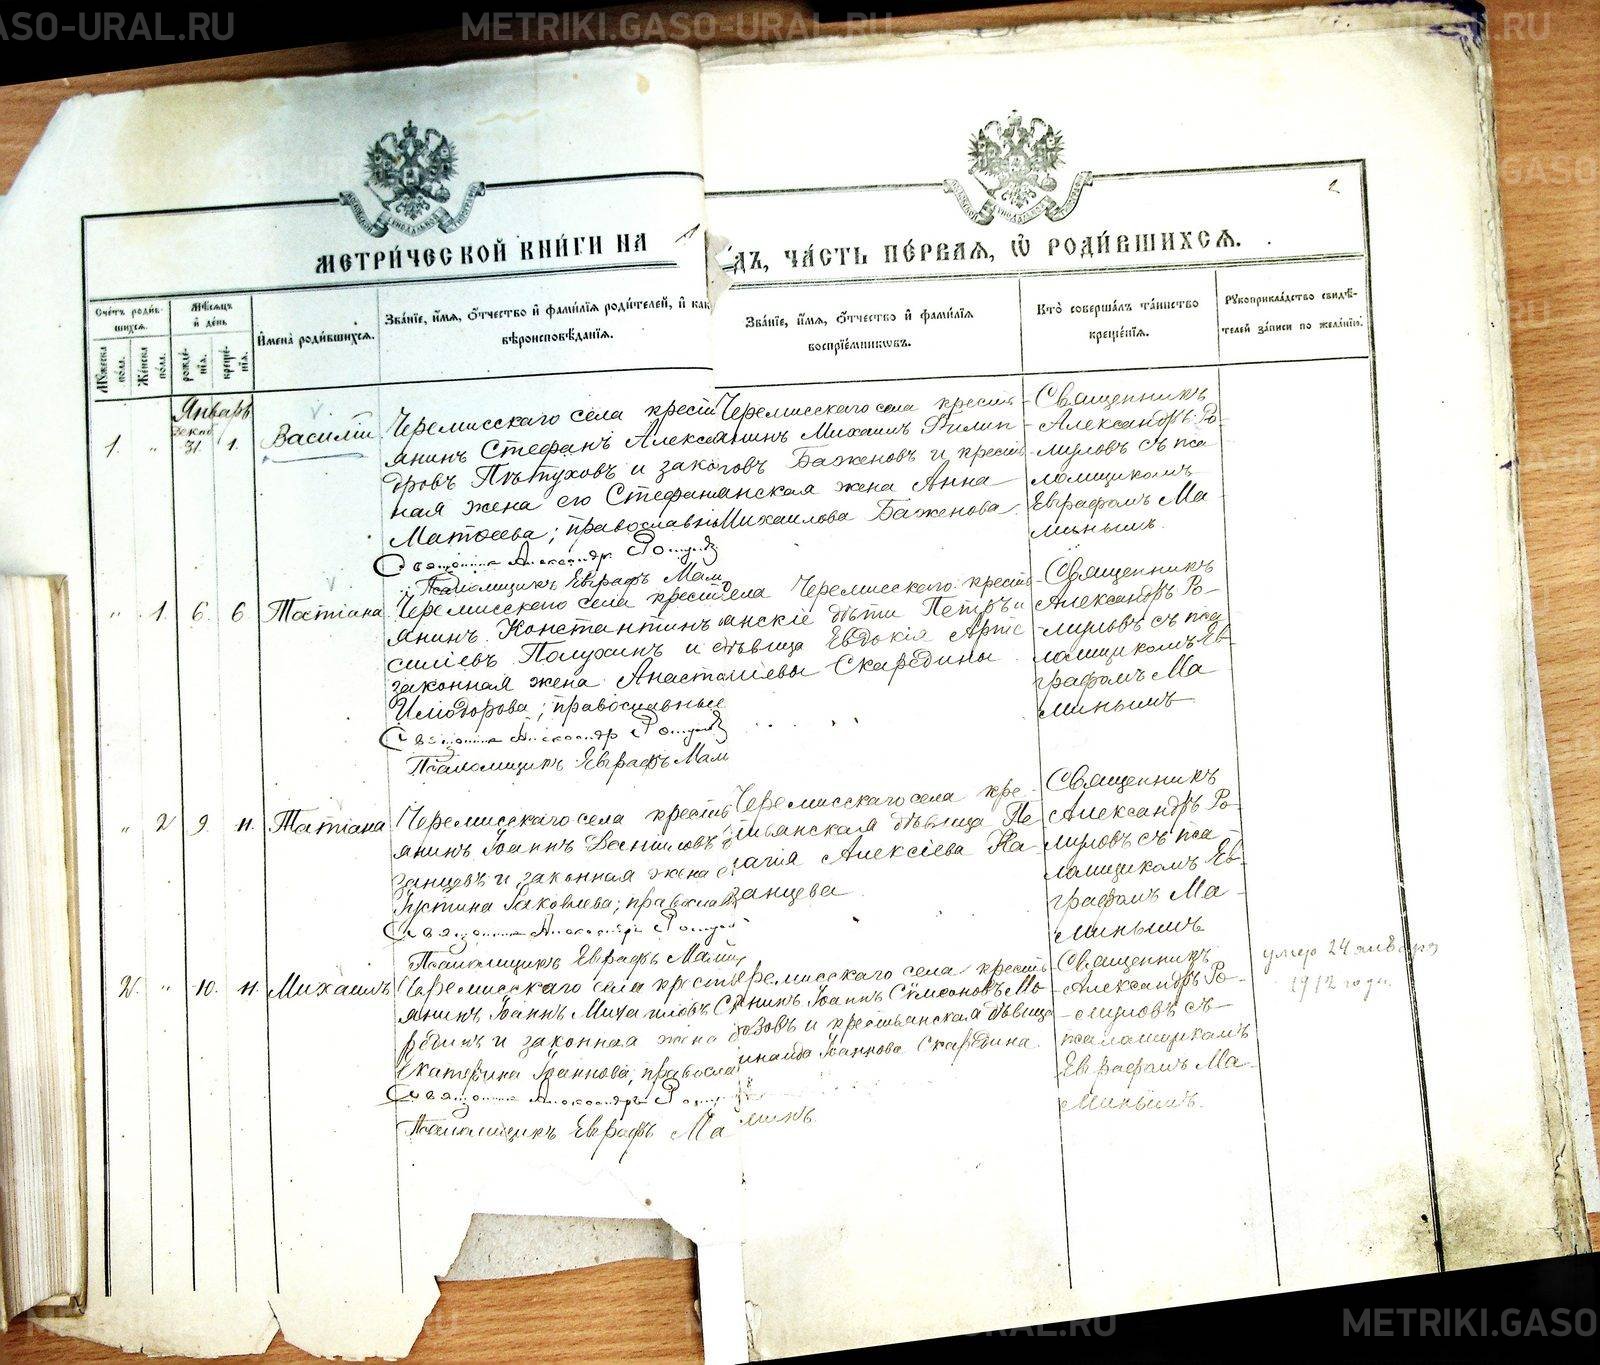 METRIKI.GASO-URAL.RU
МЕТРИ́ЧЕСКОЙ КНИ́ГИ НА 1
ДЪ, ЧА́СТЬ ПЕ́РВАЯ, Ѡ РОДИ́ВШИХСЯ.
2
Счетъ роди́вшихся.
Му́жеска по́ла.
Же́нска по́ла.
Мѣ́сяцъ и де́нь
рожде́нїя.
креще́нїя.
Имена̀ роди́вшихся.
Зва́нїе, и́мя, о́тчество и фами́лїя роди́телей, и как
вѣроисповѣ́данїя.
Зва́нїе, и́мя, о́тчество и фами́лїя
воспрїе́мниковъ.
Кто̀ соверша́лъ та́инство
креще́нїя.
Рукоприкла́дство свидѣ́-
телей за́писи по жела́нїю.
Январь
1. " Декаб. 31. 1. Василій
Черемисскаго села крестья
янинъ Стефанъ Алексан
дровъ Пѣтуховъ и закон
ная жена его Стефани
Матѳеева; православн
Священник Александр
Псаломщикъ Евграфъ Мам
Черемисскаго села крестья-
нинъ Михаилъ Филип-
повъ Баженовъ и крестья
анская жена Анна
Михаилова Баженова.
Священникъ
Александръ Ро-
муловъ съ пса
ломщикомъ
Евграфомъ Ма
минымъ.
" 1. 6. 6 Татіана
Черемисскаго села кресть
янинъ Константинъ
силіевъ Полухинъ и
законная жена Анаста
православные
Священник Александр
Псаломщикъ Евграфъ Мам
села Черемисскаго кресть-
анскіе дѣти Петръ и
дѣвица Евдокія Арте
міевы Скаредины
Священникъ
Александръ Ро-
муловъ съ пса
ломщикомъ Ев-
графомъ Ма
минымъ
" 2 9. 11. Татіана
Черемисскаго села кресть
янинъ Іоаннъ
занцевъ и законная жена
Іустина Яковлева; правосла
Священник Александр
Псаломщикъ Евграфъ Мами
Черемисскаго села кре-
стьянская дѣвица Пе
лагія Алексіева Ка-
занцева.
Священникъ
Александръ Ро-
муловъ съ пса
ломщикомъ Ев-
графомъ Ма-
минымъ
2. " 10. 11. Михаилъ
Черемисскаго села кресть
янинъ Іоаннъ Михаиловъ Ска
рединъ и законная жена
Екатерина Іоаннова, правосла
Священник Александр
Псаломщикъ Евграфъ Ма
минъ
Черемисскаго села кресть-
янинъ Іоаннъ Сѵмеоновъ Мо-
розовъ и крестьянская дѣвица
Іоаннова Скаредина.
Священникъ
Александръ Ро-
муловъ съ
псаломщикомъ
Евграфомъ Ма-
минымъ.
умер 24 января
1912 года.